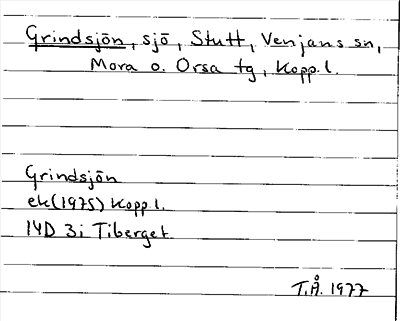 Grindsjön, sjö, Stutt, Venjans sn,
Mora o. Orsa tg, Kopp.l.
Grindsjön
ek(1975) Kopp.l.
14D 3i Tiberget
T.Å. 1977